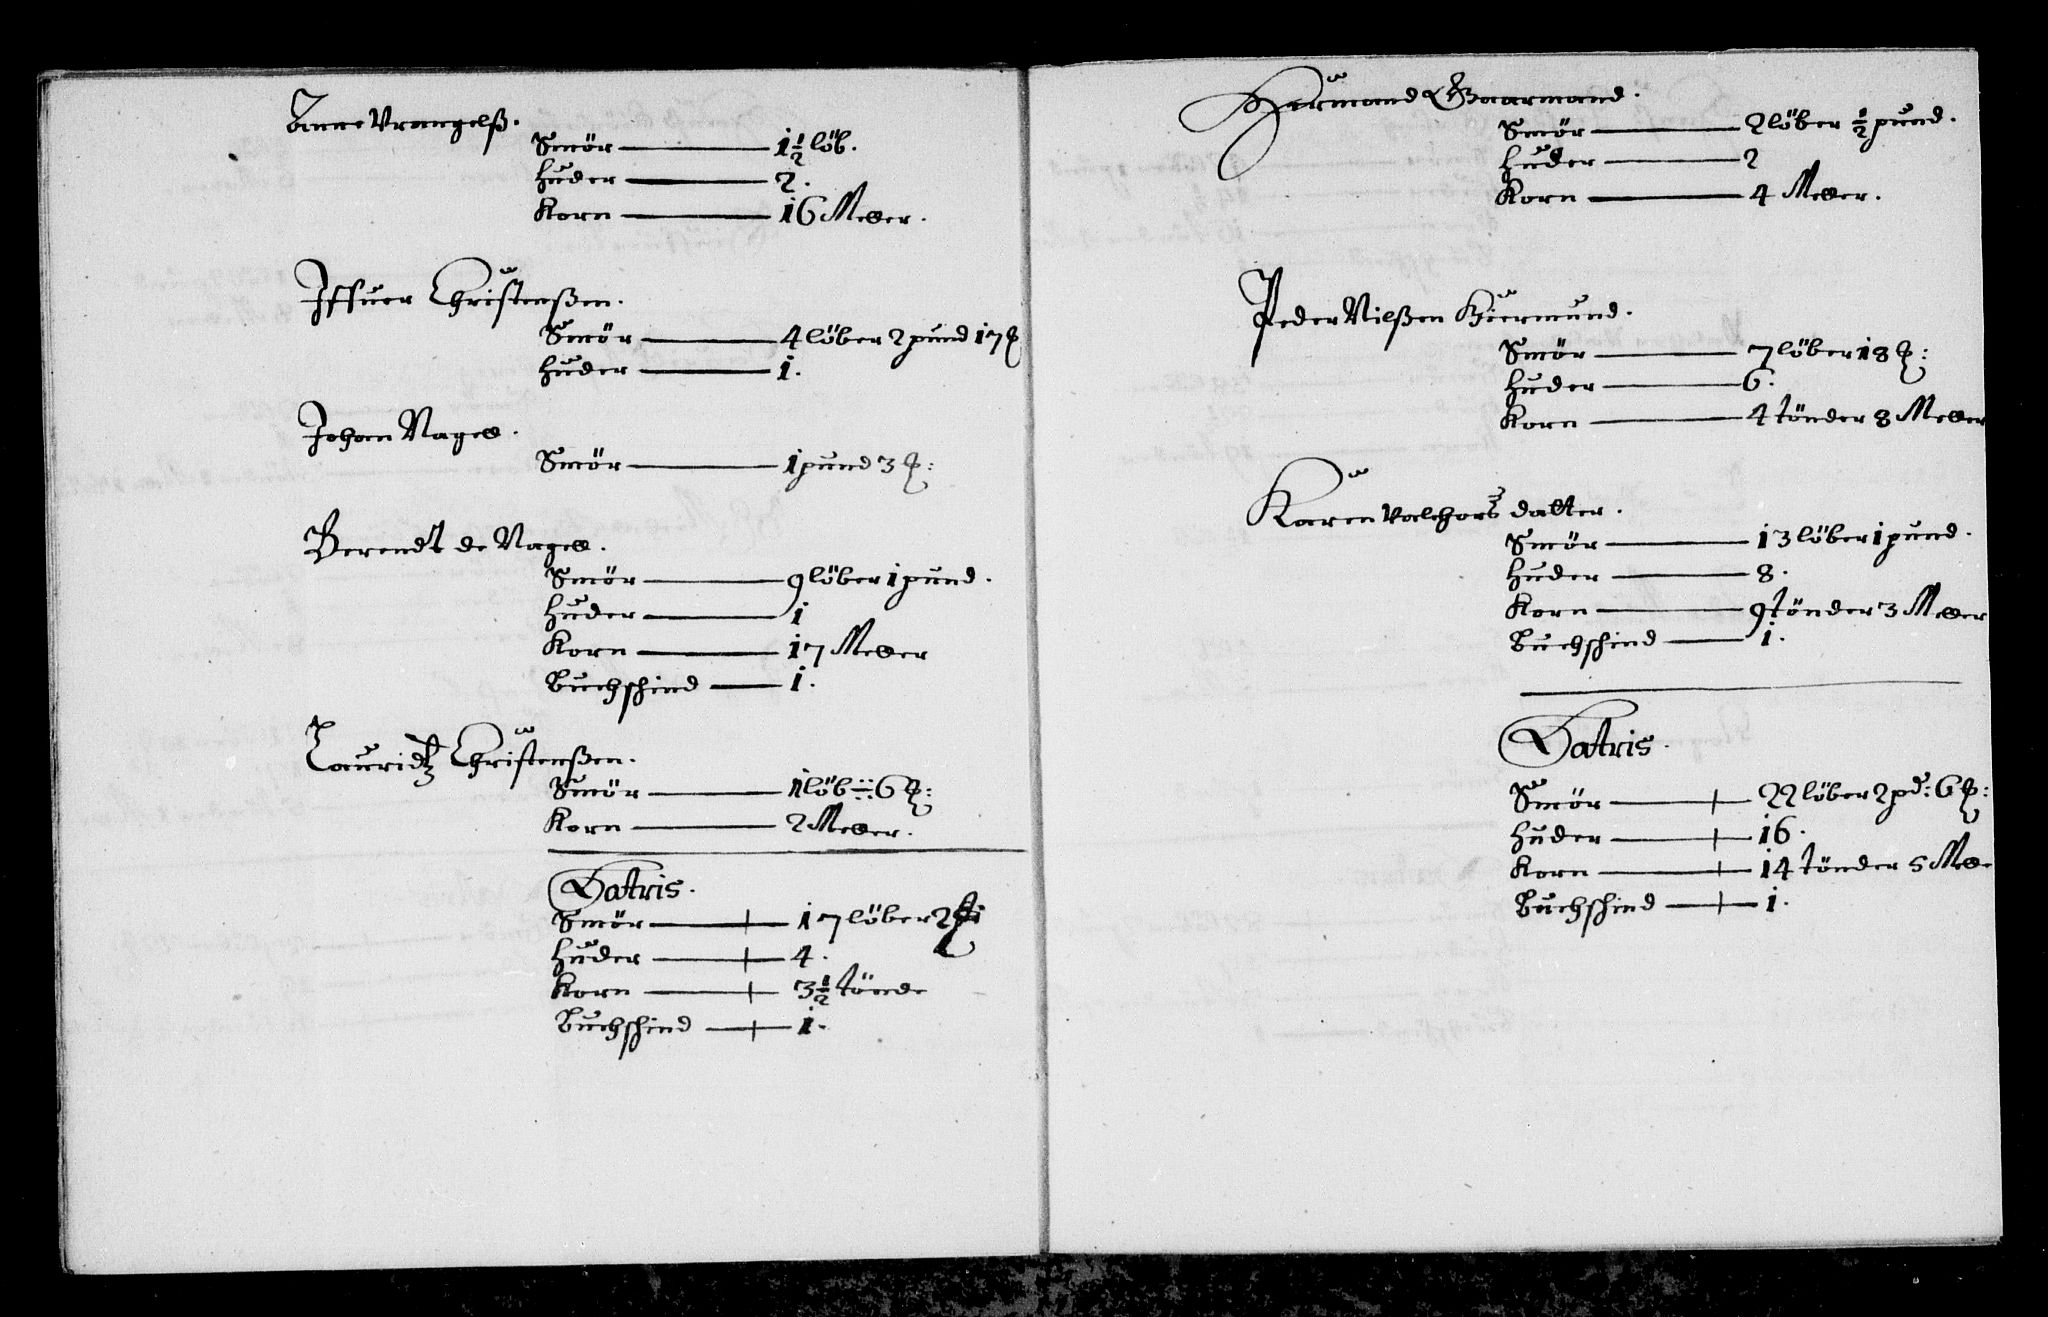 Anne Vrangelß.
Smör — 1½ löb.
huder — 2.
Korn — 16 Meller.
Iffuer Christenßen.
Smör — 4 löber 2 pund 17 ℔
huder — 1.
Johan Nagell.
Smör — 1 pund 3 ℔:
Berendt de Nagell.
Smör — 9 löber 1 pund.
huder — 1
Korn — 17 Meller
Buchschind — 1.
Lauridtz Christenßen.
Smör — 1 löb 6 ℔:
Korn — 2 Meller.
Lateris.
Smör — 17 löber 2 ℔
huder — 4.
Korn — 3½ tönde
Buchschind — 1.
Hermand Gaarmand.
Smör — 2 löber ½ pund.
huder — 2
Korn — 4 Meller.
Peder Nilßen Hiermund.
Smör — 7 löber 18 ℔:
huder — 6.
Korn — 4 tönder 8 Meller
Karen Valchors datter.
Smör — 13 löber 1 pund.
huder — 8.
Korn — 9 tönder 3 Meller
Buchschind — 1.
Lateris.
Smör — 22 löber 2 pd: 6 ℔:
huder — 16.
Korn — 14 tönder 5 Melle
Buchschind — 1.